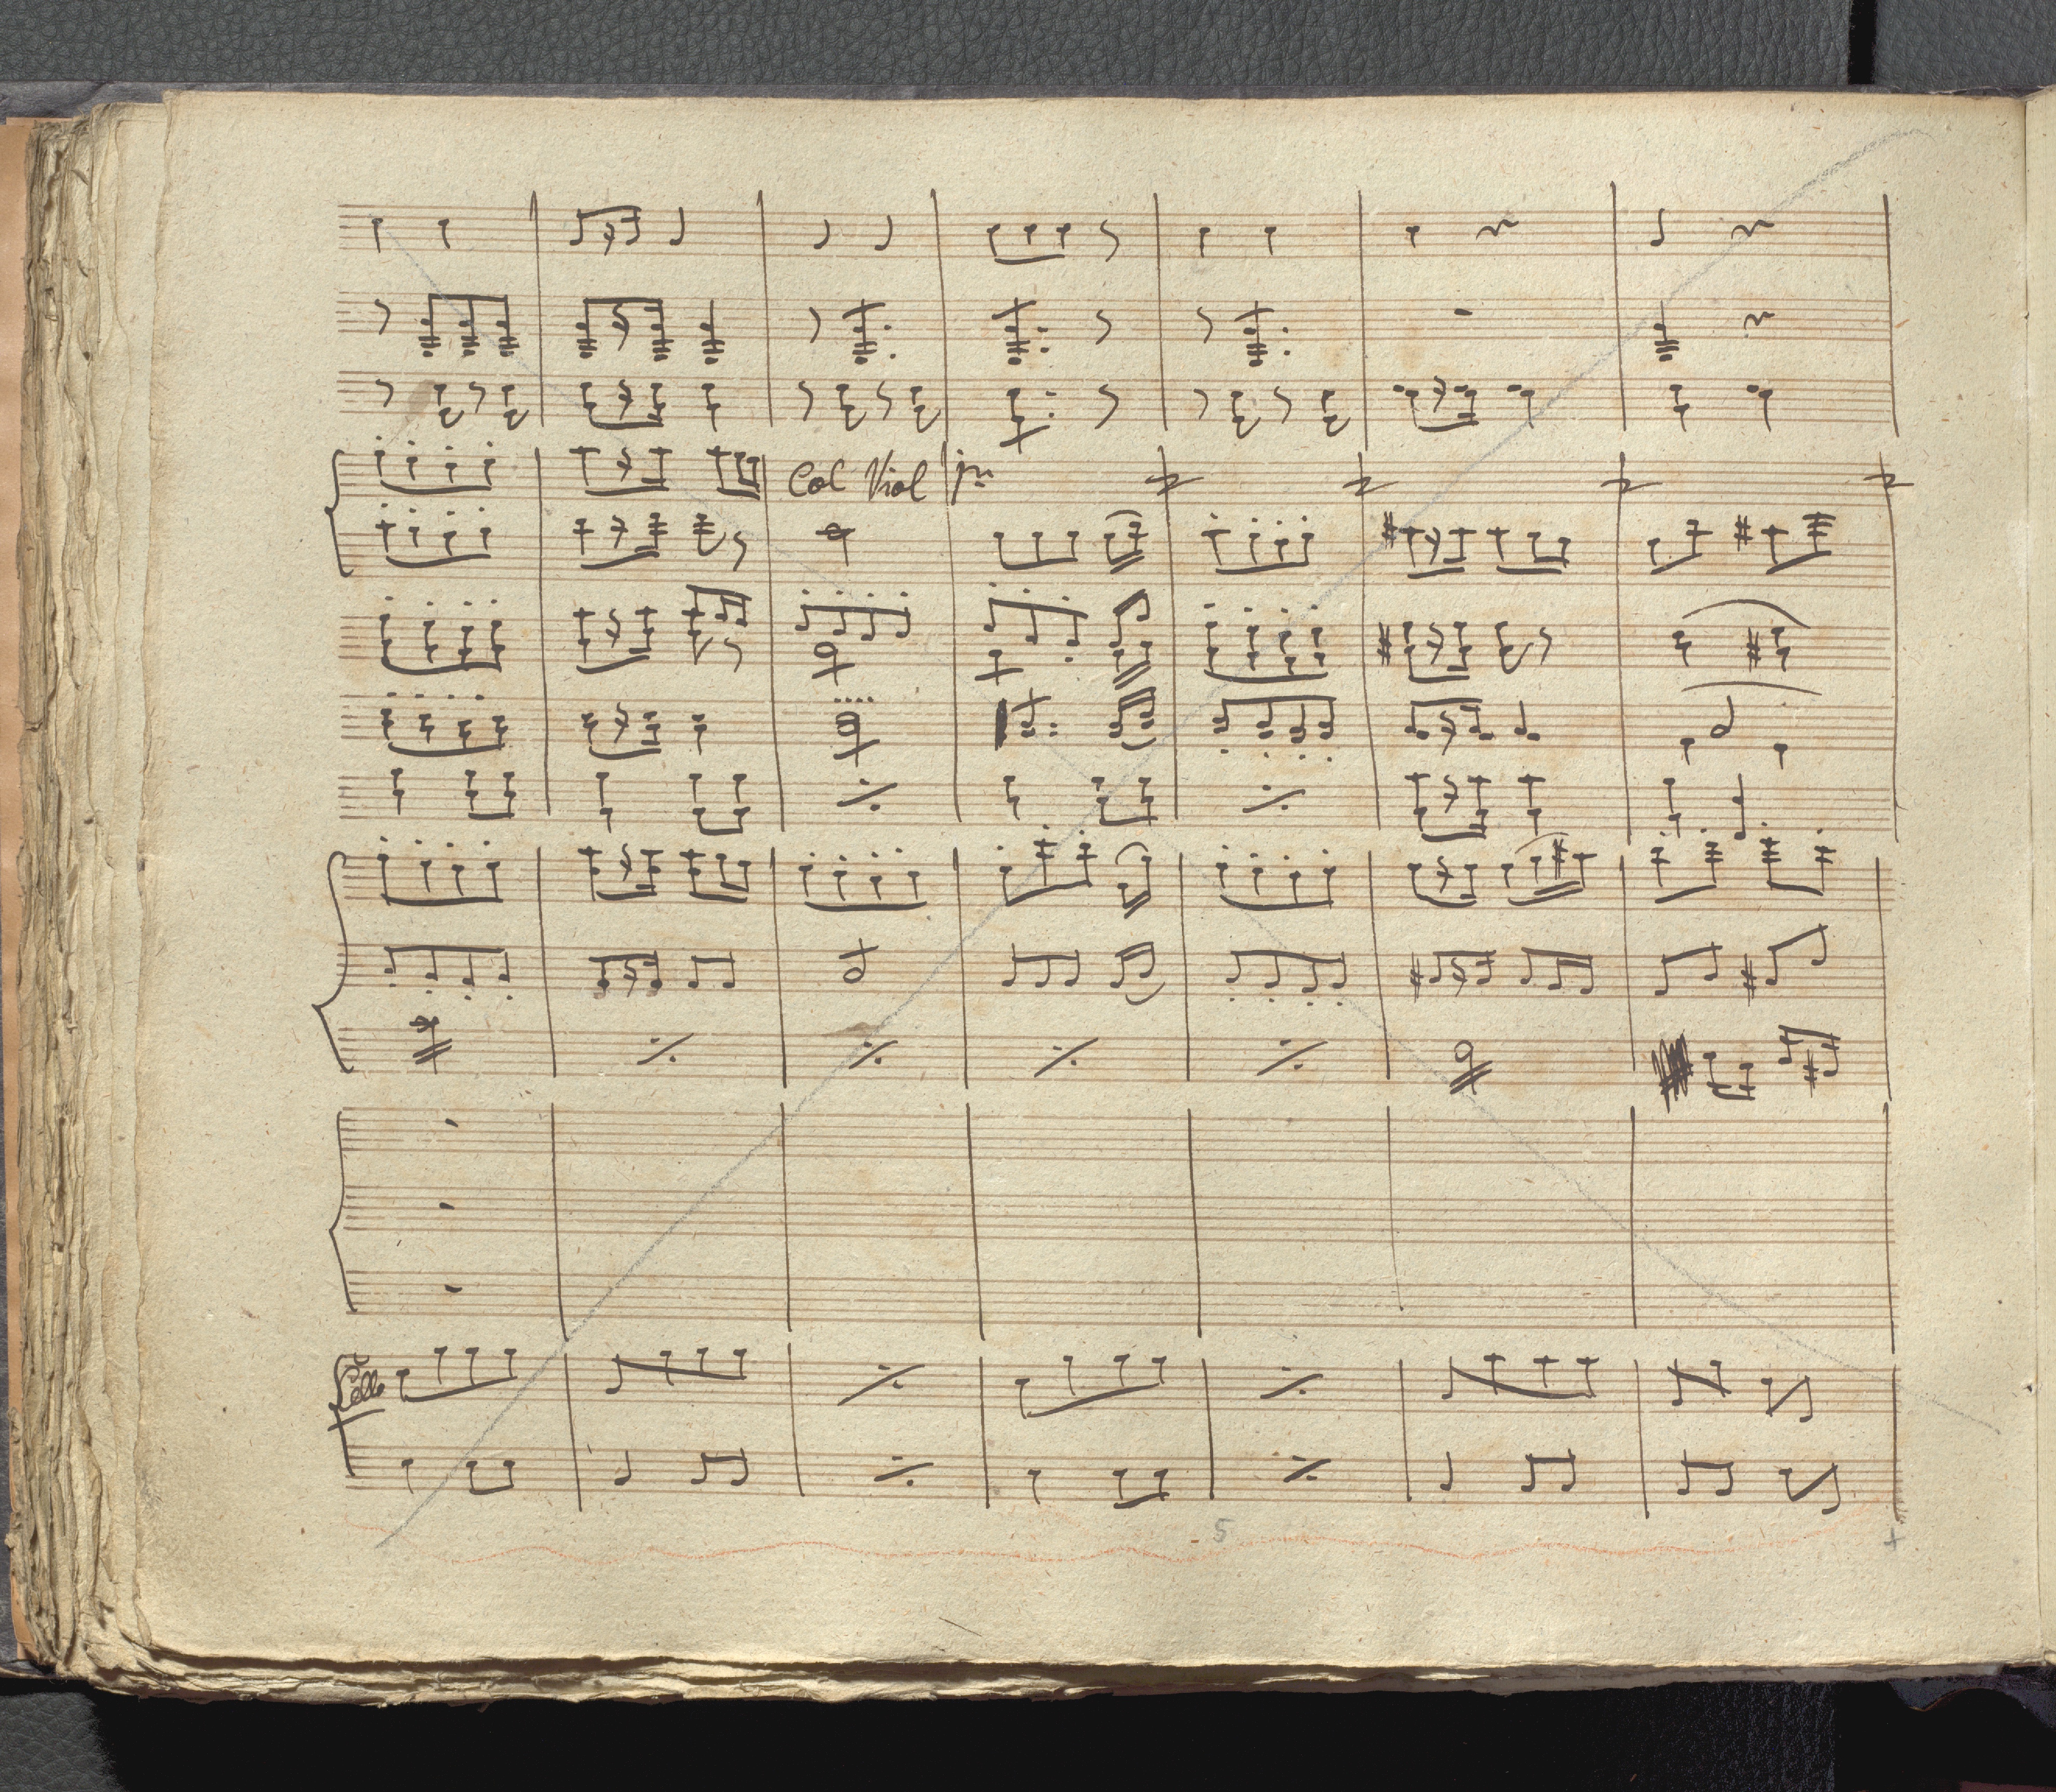 Col Viol jmo
Cello
5